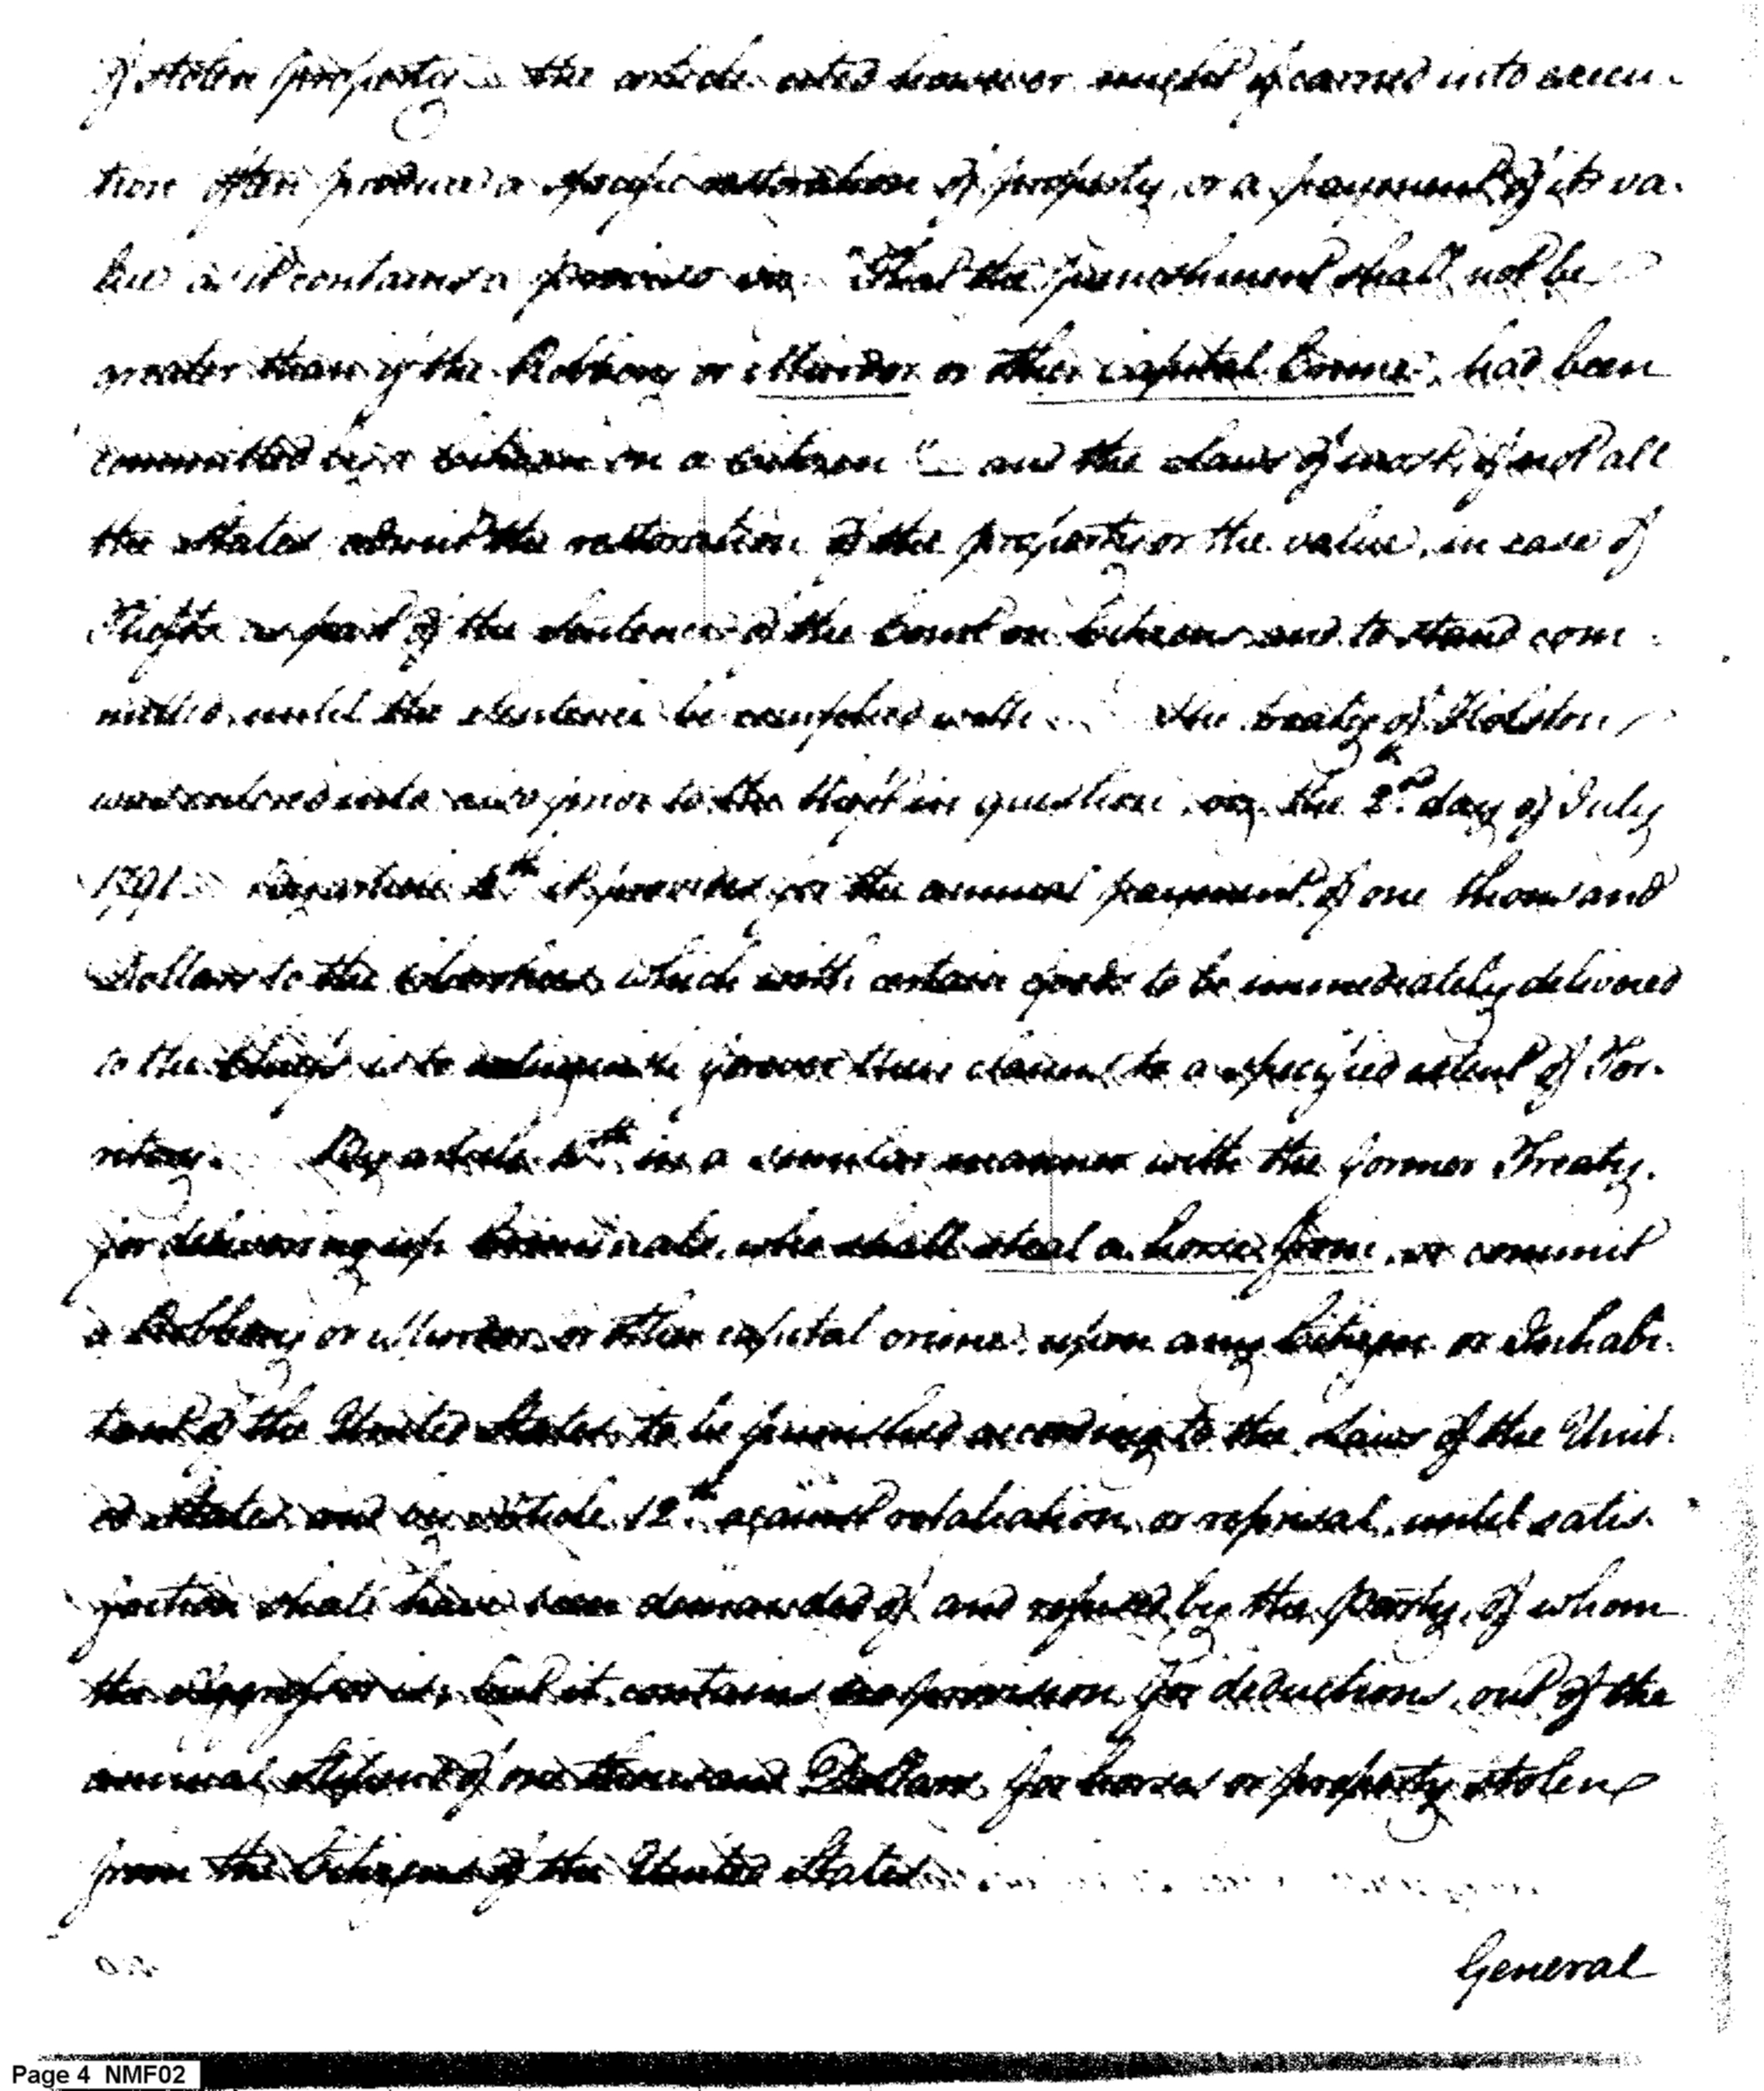 of stolen property – the article cited however might if carried into execu-
tion often produce a specific restoration of property, or a payment of its va-
lue as it contains a proviso viz. "That the punishment shall not be
greater than if the Robbery or Murder or other capital Crime, had been
committed by a Citizen on a Citizen" – and the Laws of most, if not all
the States admit the restoration of the property or the value, in case of
Thefts as part of the Sentence of the Court on Citizens and to stand com-
mitted, until the Sentence be complied with. The treaty of Holston
was entered into also prior to the theft in question, viz. the 2nd day of July
1791. By article 4th it provides for the annual payment of one thousand
Dollars to the Cherokees, which with certain goods to be immediately delivered
to the Chiefs is to extinguish forever their claims to a specified extent of Ter-
ritory. By article in a similar manner with the former Treaty,
for delivering up Criminals, who shall steal a horse from, or commit
a Robbery or Murder, or other capital crime, upon any Citizen or Inhabi-
tant of the United States, to be punished according to the Laws of the Unit-
ed States and by Article 12th against retaliation, or reprisal, until satis-
faction shall have been demanded of and refused by the party, of whom
the Aggressor is, but it contains no provision for deductions, out of the
annual stipend of one thousand Dollars, for horses or property stolen
from the Citizens of the United States.
General
Page 4 NMF02